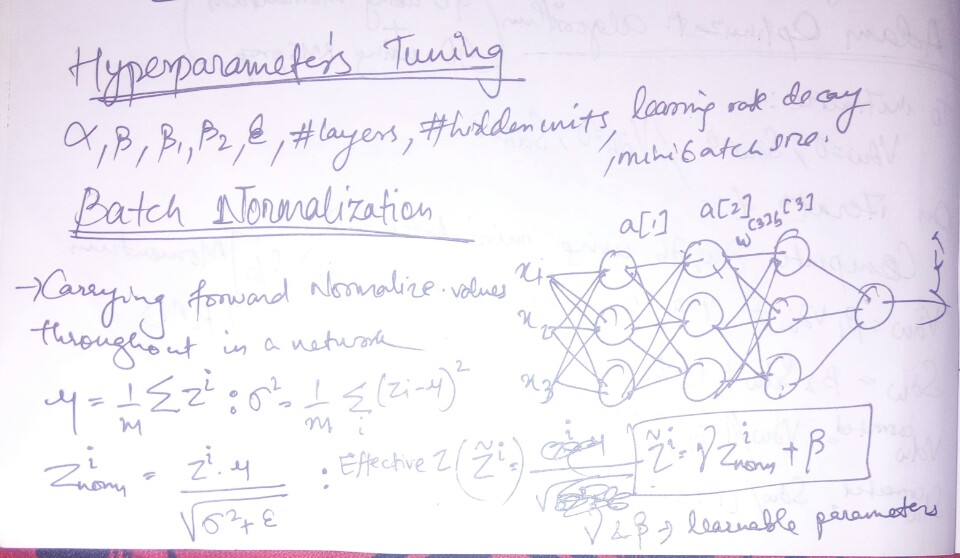 Hyperparameters Tuning
α, β, β1, β2, ε, #layers, #hidden units, learning rate decay
, minibatch size.
Batch Normalization
a[1] a[2] w[3] b[3]
→ Carrying forward Normalize values
throughout in a network
x1
x2
x3
ŷ
μ = 1/m Σ z^i : σ² = 1/m Σ_i (zi - μ)²
Z^i_norm = z^i . μ / √σ² + ε : Effective Z (z̃^i = z̃^i = γ Z^i_norm + β
γ & β → learnable parameters